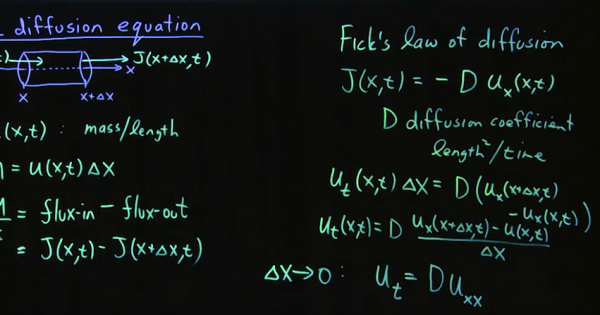 diffusion equation
J(x+Δx,t)
x
x
x+Δx
(x,t) : mass/length
= u(x,t) Δx
= flux-in - flux-out
= J(x,t) - J(x+Δx,t)
Fick's law of diffusion
J(x,t) = - D u_x(x,t)
D diffusion coefficient
length²/time
u_t(x,t) Δx = D(u_x(x+Δx,t)
- u_x(x,t))
u_t(x,t) = D u_x(x+Δx,t) - u(x,t)
Δx
Δx→0 : u_t = D u_xx